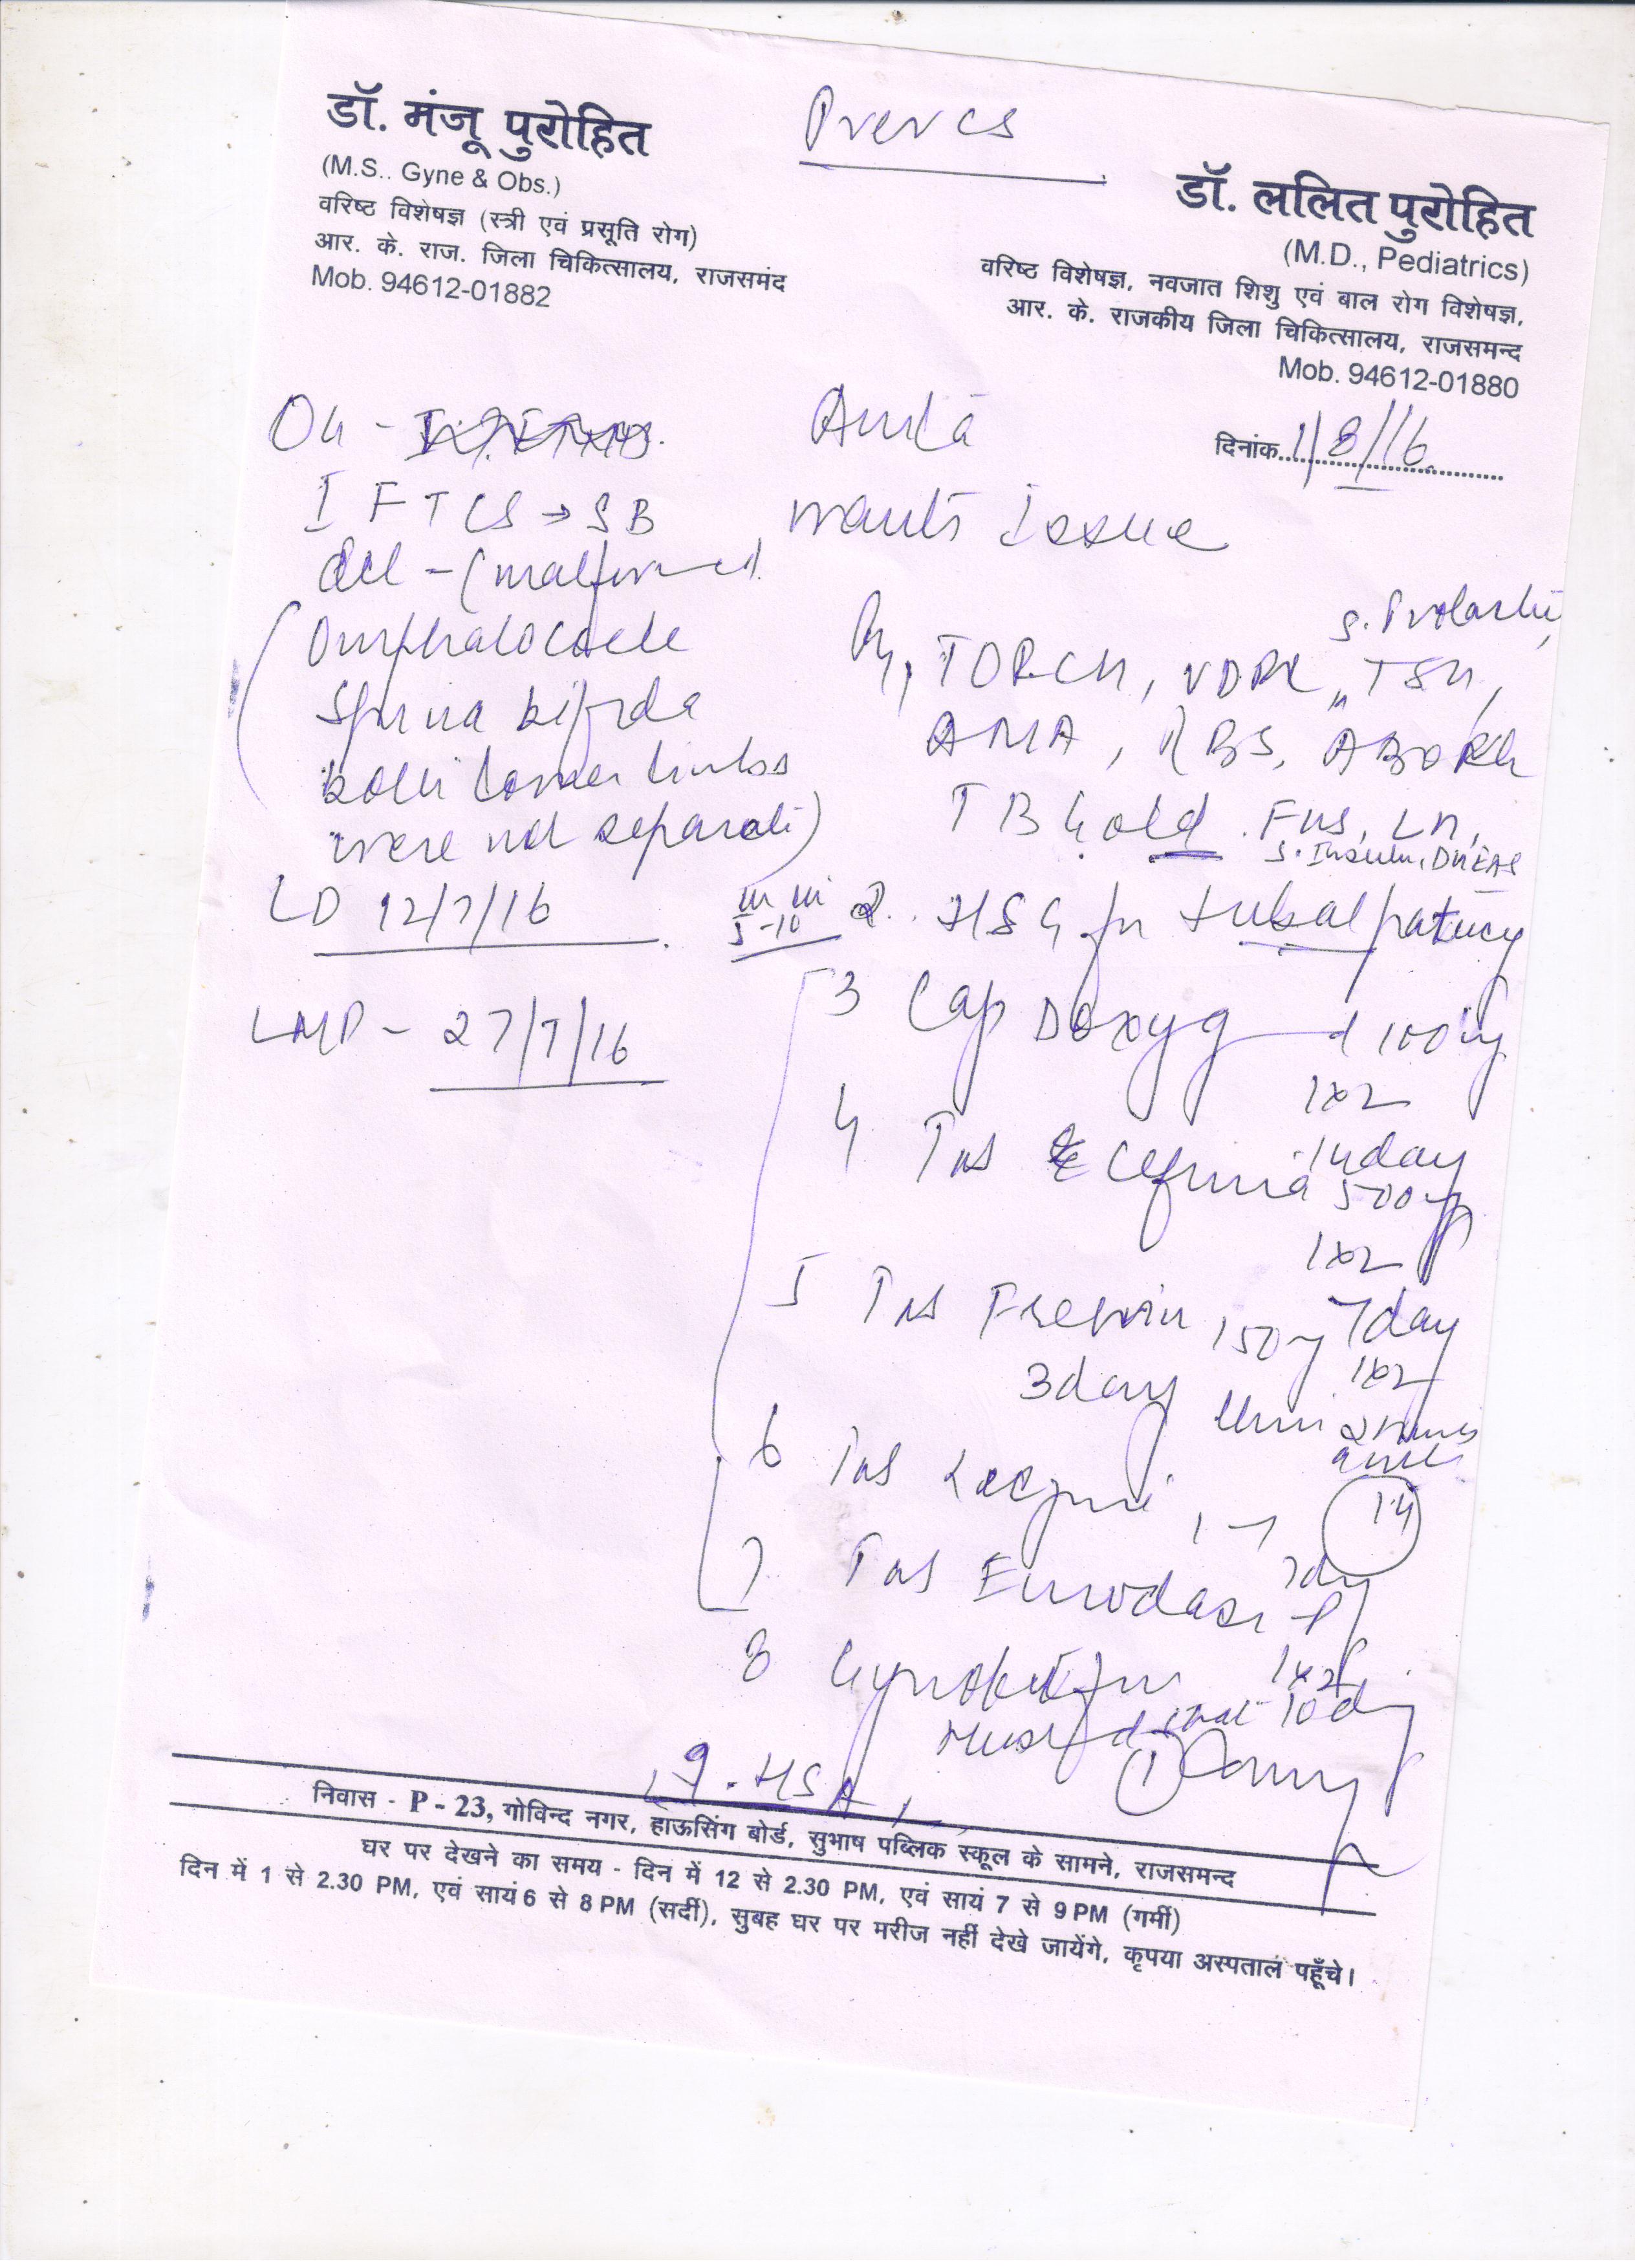 Prev CS
डॉ. मंजू पुरोहित
(M.S.. Gyne & Obs.)
वरिष्ठ विशेषज्ञ (स्त्री एवं प्रसूति रोग)
आर. के. राज. जिला चिकित्सालय, राजसमंद
Mob. 94612-01882
डॉ. ललित पुरोहित
(M.D., Pediatrics)
वरिष्ठ विशेषज्ञ, नवजात शिशु एवं बाल रोग विशेषज्ञ,
आर. के. राजकीय जिला चिकित्सालय, राजसमन्द
Mob. 94612-01880
दिनांक 1/8/16
OH -
I FTCS → SB
(malformed
Omphalocoele
Spina bifida
both lower limbs
were not separate)
LD 12/7/16
LMP - 27/7/16
wants issue
S. Prolactin,
TORCH, VDRL, TSH,
ANA, RBS, ABORh
TB Gold. FHS, LH,
S. Insulin, DHEAS
5-10
2. HSG for tubal patency
3 Cap Doxy 100 mg
1x2
14 day
4 Tab 500 mg
1x2
7 day
5 Tab 150 mg
1x2
3 day
6 Tab
14
7 Tab
1x2
8
10 d
9. HSA
निवास - P - 23, गोविन्द नगर, हाऊसिंग बोर्ड, सुभाष पब्लिक स्कूल के सामने, राजसमन्द
घर पर देखने का समय - दिन में 12 से 2.30 PM, एवं सायं 7 से 9 PM (गर्मी)
दिन में 1 से 2.30 PM, एवं सायं 6 से 8 PM (सर्दी), सुबह घर पर मरीज नहीं देखे जायेंगे, कृपया अस्पताल पहुँचे।